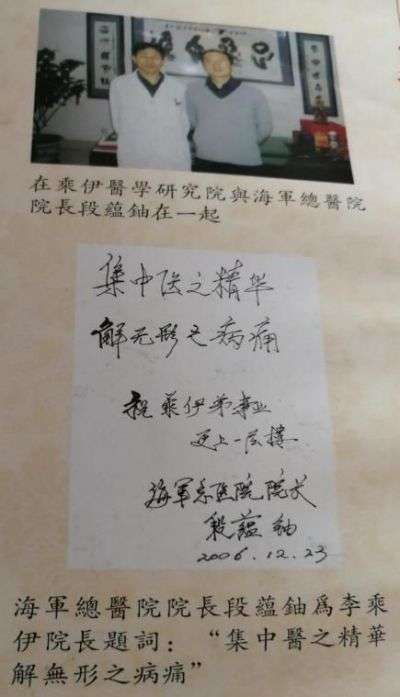 在乘伊醫學研究院與海軍總醫院
院長段蘊鈾在一起
集中医之精华
解无形之病痛
祝乘伊弟事业
更上一层樓
海軍总医院院长
段蘊鈾
2006.12.23
海軍總醫院院長段蘊鈾爲李乘
伊院長題詞：“集中醫之精華
解無形之病痛”